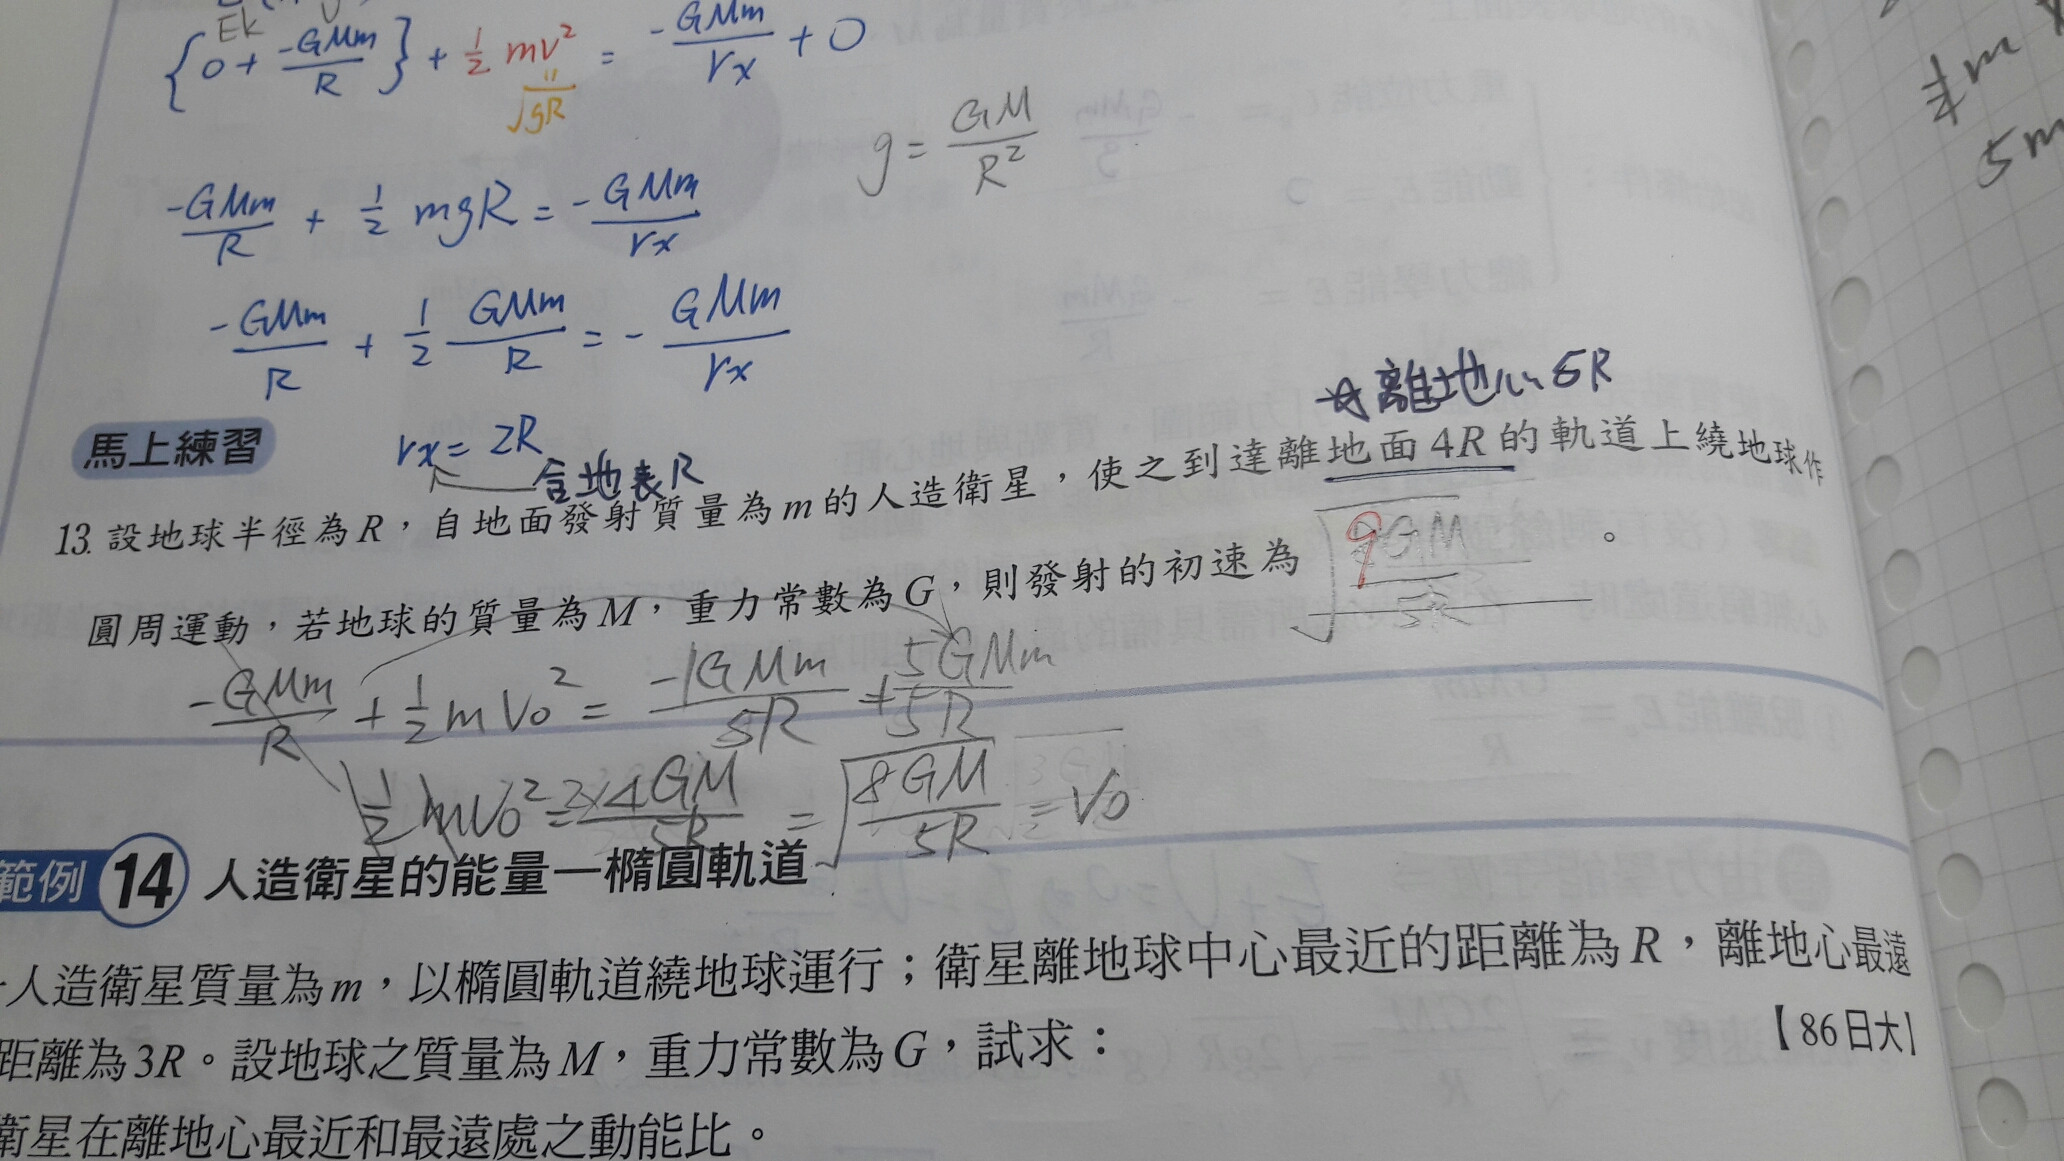 Ek
{0 + -GMm/R} + 1/2 mv² = -GMm/rx + 0
√gR
g = GM/R²
-GMm/R + 1/2 mgR = -GMm/rx
-GMm/R + 1/2 GMm/R = -GMm/rx
☆離地心5R
馬上練習
rx = 2R
含地表R
13. 設地球半徑為R,自地面發射質量為m的人造衛星,使之到達離地面4R的軌道上繞地球作
圓周運動,若地球的質量為M,重力常數為G,則發射的初速為 √9GM/5R 。
-GMm/R + 1/2 mV0² = -1GMm/5R + 5GMm/5R
1/2 mV0² = 2×4GM/5R = √8GM/5R = V0
範例 14 人造衛星的能量—橢圓軌道
人造衛星質量為m,以橢圓軌道繞地球運行;衛星離地球中心最近的距離為R,離地心最遠
距離為3R。設地球之質量為M,重力常數為G,試求:
【86日大】
衛星在離地心最近和最遠處之動能比。
1/2 m
5m